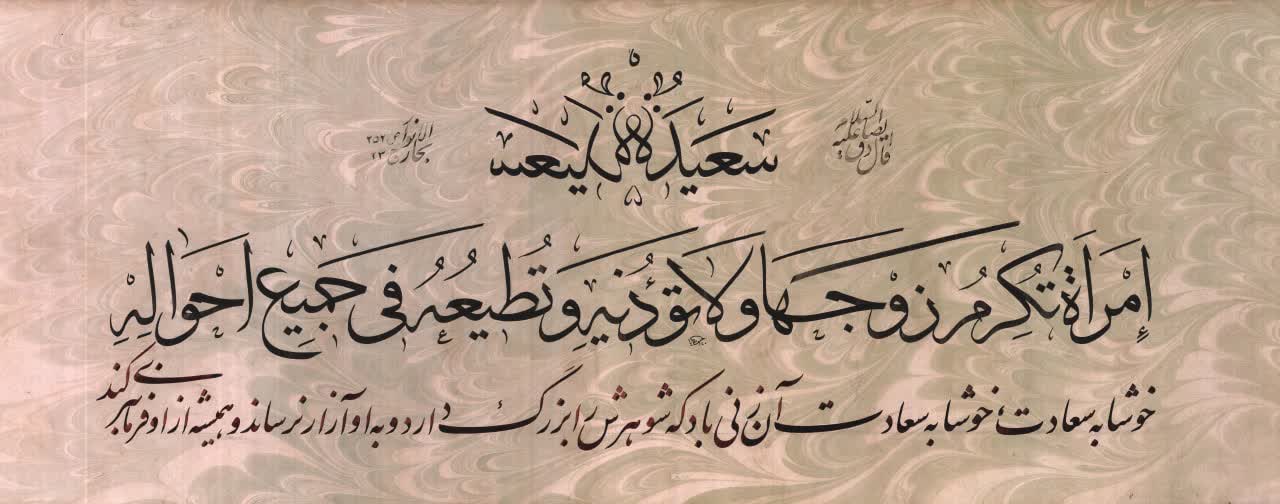 قال الصادق علیه السلام
سَعیدَةٌ سَعیدَةٌ
بحار الانوار ج ١٠٣ ص ٢٥٢
إِمْرَأَة تُكْرِمُ زوجَها ولا تؤذیهِ وَتُطیعُهُ فی جَمیعِ اَحْوالِهِ
خوشا به سعادت، خوشا به سعادت آن زنی باد که شوهرش را بزرگ دارد و به او آزار نرساند و همیشه از او فرمانبری کند